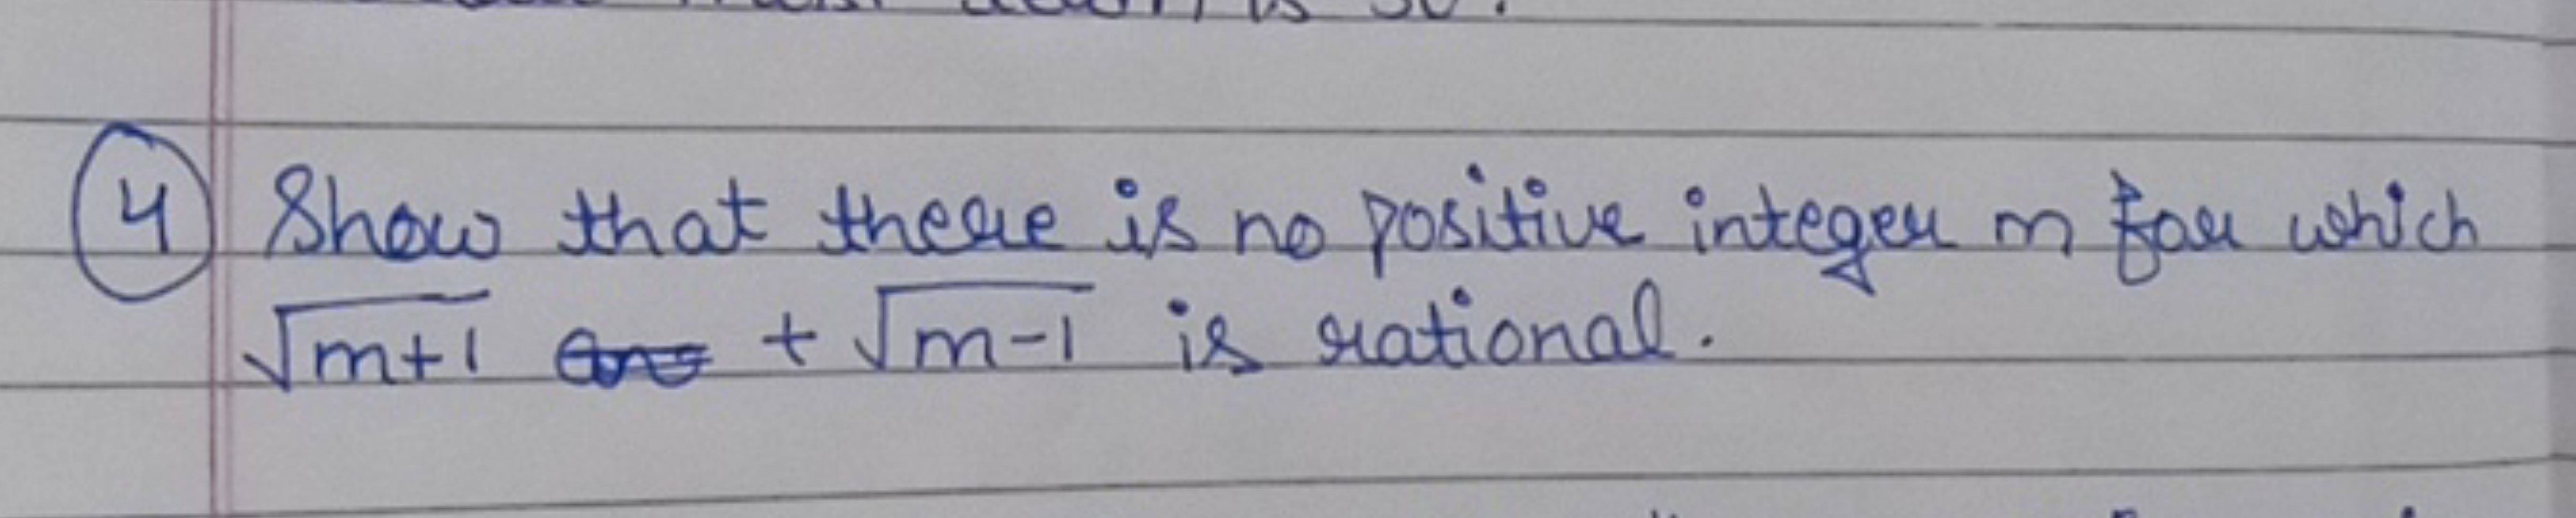 ④ Show that there is no positive integer m for which
√m+1 + √m-1 is rational.